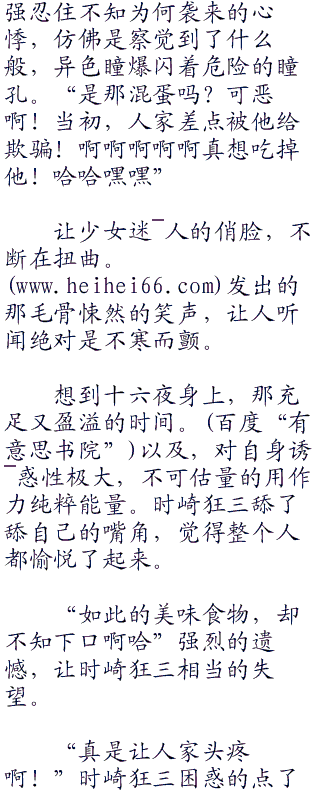 强忍住不知为何袭来的心
悸，仿佛是察觉到了什么
般，异色瞳爆闪着危险的瞳
孔。“是那混蛋吗？可恶
啊！当初，人家差点被他给
欺骗！啊啊啊啊啊真想吃掉
他！哈哈嘿嘿”
让少女迷¯人的俏脸，不
断在扭曲。
(www.heihei66.com)发出的
那毛骨悚然的笑声，让人听
闻绝对是不寒而颤。
想到十六夜身上，那充
足又盈溢的时间。(百度“有
意思书院”)以及，对自身诱
¯惑性极大，不可估量的用作
力纯粹能量。时崎狂三舔了
舔自己的嘴角，觉得整个人
都愉悦了起来。
“如此的美味食物，却
不知下口啊哈”强烈的遗
憾，让时崎狂三相当的失
望。
“真是让人家头疼
啊！”时崎狂三困惑的点了